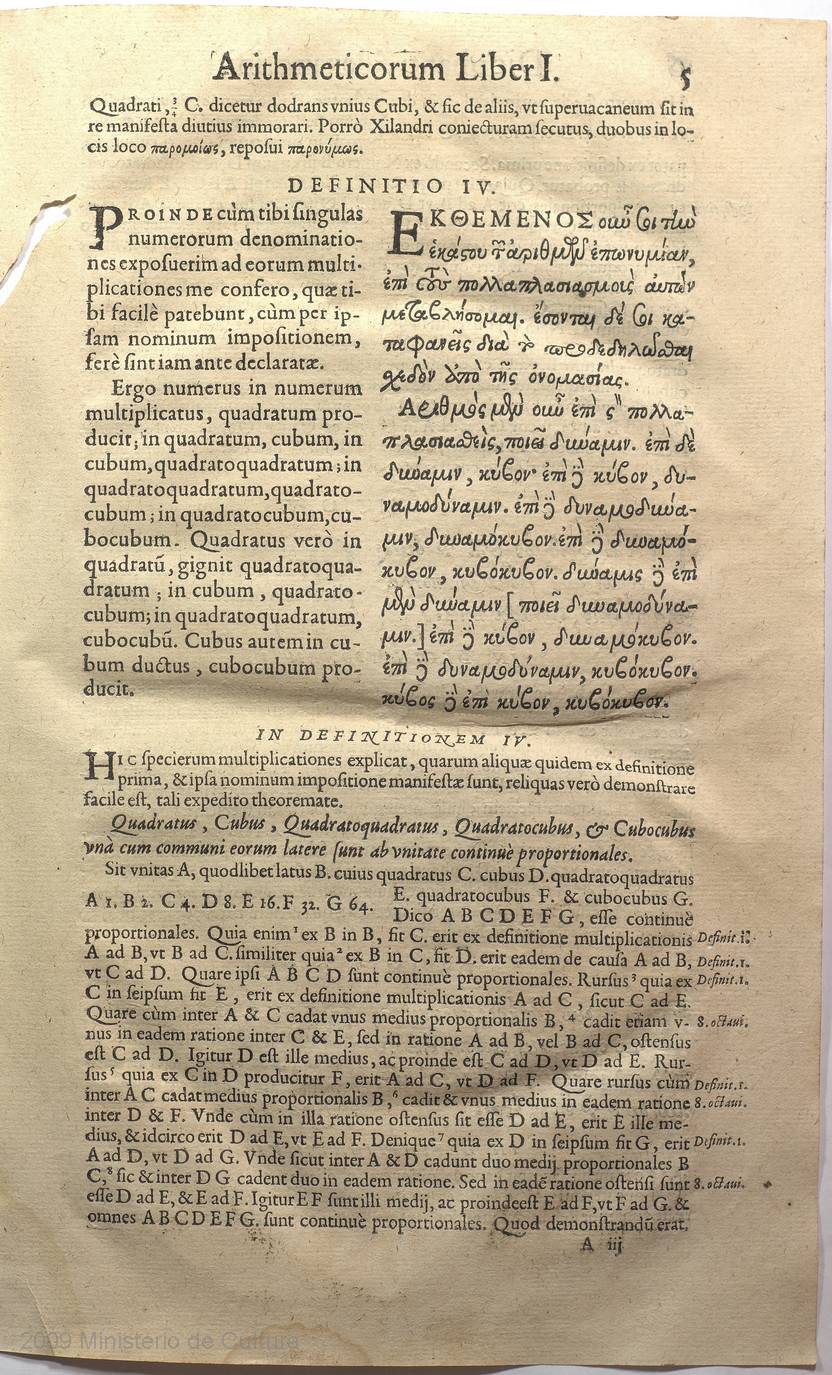 Arithmeticorum Liber I. 5
Quadrati, ¾ C. dicetur dodrans vnius Cubi, & sic de aliis, vt superuacaneum sit in
re manifesta diutius immorari. Porrò Xilandri coniecturam secutus, duobus in lo-
cis loco παρομοίως, reposui παρονύμως.
DEFINITIO IV.
PROINDE cùm tibi singulas
numerorum denominatio-
nes exposuerim ad eorum multi-
plicationes me confero, quæ ti-
bi facilè patebunt, cùm per ip-
sam nominum impositionem,
ferè sint iam ante declaratæ.
Ergo numerus in numerum
multiplicatus, quadratum pro-
ducit; in quadratum, cubum, in
cubum, quadratoquadratum; in
quadratoquadratum, quadrato-
cubum; in quadratocubum, cu-
bocubum. Quadratus verò in
quadratũ, gignit quadratoqua-
dratum; in cubum, quadrato-
cubum; in quadratoquadratum,
cubocubũ. Cubus autem in cu-
bum ductus, cubocubum pro-
ducit.
ΕΚΘΕΜΕΝΟΣ οὖν σοι τὴν
ἑκάστου τῶν ἀριθμῶν ἐπωνυμίαν,
ἐπὶ τοὺς πολλαπλασιασμοὺς αὐτῶν
μεταβλήσομαι. ἔσονται δέ σοι κα-
ταφανεῖς διὰ τὸ προδεδηλῶσθαι
σχεδὸν ὑπὸ τῆς ὀνομασίας.
Ἀριθμὸς μὲν οὖν ἐπὶ ςʺ πολλα-
πλασιασθεὶς, ποιεῖ δύναμιν. ἐπὶ δὲ
δύναμιν, κύβον· ἐπὶ δὲ κύβον, δυ-
ναμοδύναμιν. ἐπὶ δὲ δυναμοδύνα-
μιν, δυναμόκυβον. ἐπὶ δὲ δυναμό-
κυβον, κυβόκυβον. δύναμις δὲ ἐπὶ
μὲν δύναμιν [ποιεῖ δυναμοδύνα-
μιν.] ἐπὶ δὲ κύβον, δυναμόκυβον.
ἐπὶ δὲ δυναμοδύναμιν, κυβόκυβον.
κύβος δὲ ἐπὶ κύβον, κυβόκυβον.
IN DEFINITIONEM IV.
HIC specierum multiplicationes explicat, quarum aliquæ quidem ex definitione
prima, & ipsa nominum impositione manifestæ sunt, reliquas verò demonstrare
facile est, tali expedito theoremate.
Quadratus, Cubus, Quadratoquadratus, Quadratocubus, & Cubocubus
vnà cum communi eorum latere sunt ab vnitate continuè proportionales.
Sit vnitas A, quodlibet latus B. cuius quadratus C. cubus D. quadratoquadratus
A 1. B 2. C 4. D 8. E 16. F 32. G 64. E. quadratocubus F. & cubocubus G.
Dico A B C D E F G, esse continuè
proportionales. Quia enim¹ ex B in B, fit C. erit ex definitione multiplicationis Definit.1.
A ad B, vt B ad C. similiter quia² ex B in C, fit D. erit eadem de causa A ad B, Definit.1.
vt C ad D. Quare ipsi A B C D sunt continuè proportionales. Rursus³ quia ex Definit.1.
C in seipsum fit E, erit ex definitione multiplicationis A ad C, sicut C ad E.
Quare cùm inter A & C cadat vnus medius proportionalis B,⁴ cadit etiam v- 8. octaui.
nus in eadem ratione inter C & E, sed in ratione A ad B, vel B ad C, ostensus
est C ad D. Igitur D est ille medius, ac proinde est C ad D, vt D ad E. Rur-
sus⁵ quia ex C in D producitur F, erit A ad C, vt D ad F. Quare rursus cùm Definit.1.
inter A C cadat medius proportionalis B,⁶ cadit & vnus medius in eadem ratione 8. octaui.
inter D & F. Vnde cùm in illa ratione ostensus sit esse D ad E, erit E ille me-
dius, & idcirco erit D ad E, vt E ad F. Denique⁷ quia ex D in seipsum fit G, erit Definit.1.
A ad D, vt D ad G. Vnde sicut inter A & D cadunt duo medij proportionales B
C,⁸ sic & inter D G cadent duo in eadem ratione. Sed in eadẽ ratione ostensi sunt 8. octaui.
esse D ad E, & E ad F. Igitur E F sunt illi medij, ac proinde est E ad F, vt F ad G. &
omnes A B C D E F G. sunt continuè proportionales. Quod demonstrandũ erat.
A iij
2009 Ministerio de Cultura